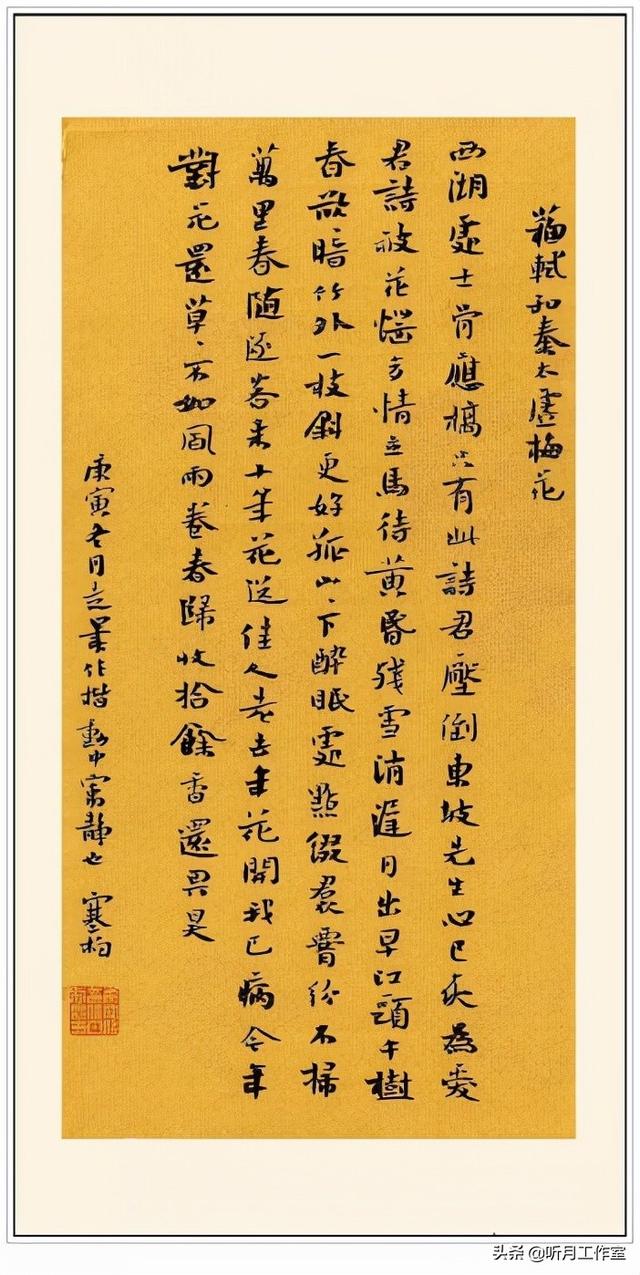 蘇軾和秦太虛梅花
西湖處士骨應槁只有此詩君壓倒東坡先生心已灰為愛
君詩被花惱多情立馬待黃昏殘雪消遲月出早江頭千樹
春欲暗竹外一枝斜更好孤山〻下醉眠處點綴裙腰紛不掃
萬里春隨逐客來十年花送佳人老去年花開我已病今年
對花還草〻不如風雨卷春歸收拾餘香還畀昊
庚寅冬月走筆作楷動中寓靜也 寒柏
头条 @听月工作室